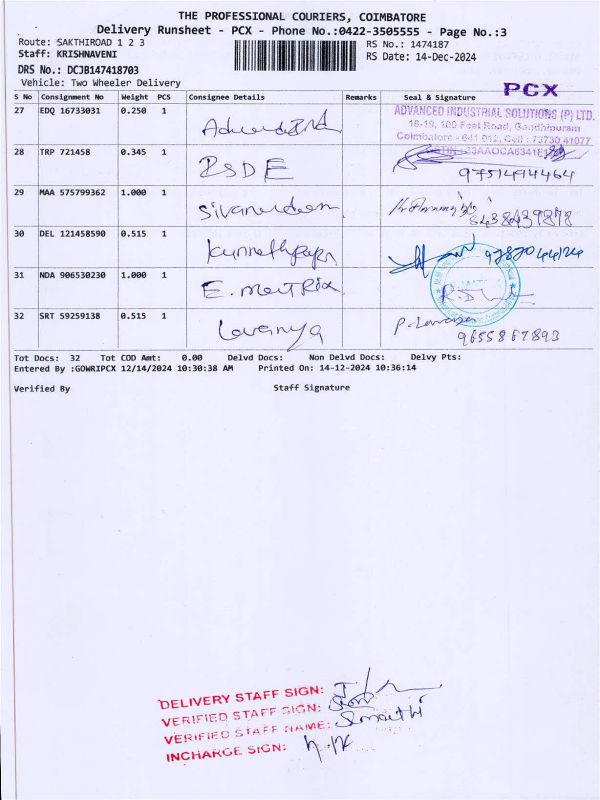 THE PROFESSIONAL COURIERS, COIMBATORE
Delivery Runsheet - PCX - Phone No.:0422-3505555 - Page No.:3
Route: SAKTHIROAD 1 2 3
RS No.: 1474187
Staff: KRISHNAVENI
RS Date: 14-Dec-2024
DRS No.: DCJB147418703
Vehicle: Two Wheeler Delivery
PCX
S No Consignment No Weight PCS Consignee Details Remarks Seal & Signature
27 EDQ 16733031 0.250 1
ADVANCED INDUSTRIAL SOLUTIONS (P) LTD.
18-19, 100 Feet Road, Gandhipuram
Coimbatore - 641 012, Cell : 73730 41077
28 TRP 721458 0.345 1 BSDE
9751494464
29 MAA 575799362 1.000 1
30 DEL 121458590 0.515 1
31 NDA 906530230 1.000 1 E. matrix
32 SRT 59259138 0.515 1 Lavanya
9655867893
Tot Docs: 32 Tot COD Amt: 0.00 Delvd Docs: Non Delvd Docs: Delvy Pts:
Entered By :GOWRIPCX 12/14/2024 10:30:38 AM Printed On: 14-12-2024 10:36:14
Verified By Staff Signature
DELIVERY STAFF SIGN:
VERIFIED STAFF SIGN:
VERIFIED STAFF NAME:
INCHARGE SIGN: